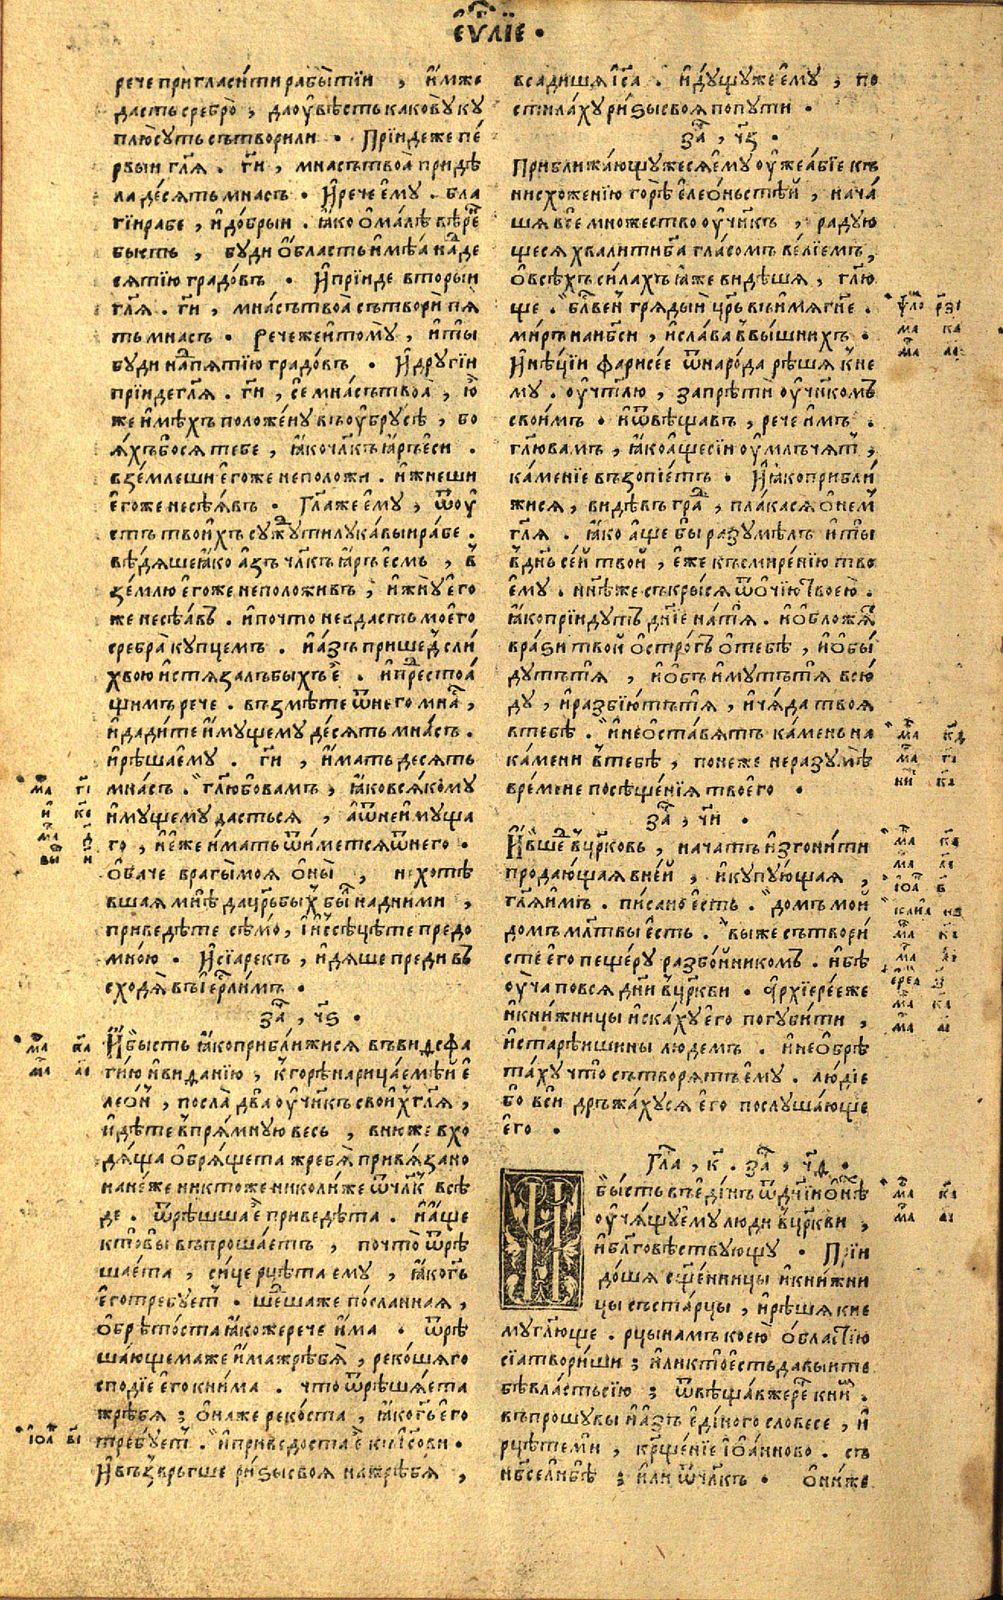 єѵⷢ҇лїе .
рече пригласи́ти рабы̀ тїи , и҆мже
дастьсребро̀ , да оу҆вѣсть каковꙋ кꙋ
плю̀ сꙋть сътворили . Прїиде же пе́
рвыи гл҃ѧ . гн҃и , мнасъ твоа̀ придѣ
ла де́сѧть мнасъ . И҆ рече є҆мꙋ . бла
гїи рабе , и҆ до́брыи . ꙗ҆ко ѡ҆ малѣ вѣре́нъ
бысть , буди о҆бласть и҆мѣа над де
сѧтїю градо́въ . И҆ прїиде вторыи
гл҃ѧ . гн҃и , мнасъ твоа̀ сътвори пѧ
ть мнасъ . Рече же и҆ томꙋ , и҆ ты̀
буди над пѧтїю градо́въ . И҆ дрꙋгїи
прїиде гл҃ѧ . гн҃и , се мнасъ твоа̀ , ю҆
же и҆мѣхъ положе́нꙋ въ оу҆брꙋсѣ , бо
ѧхъ бо сѧ тебе , ꙗ҆ко чл҃къ ꙗ҆ръ є҆си .
вземлеши є҆гоже не положи . и҆ жнеши
є҆гоже не сѣѧвъ . Гл҃а же є҆мꙋ , ѿ оу҆
стъ твои҆хъ сꙋждꙋ ти лꙋкавыи рабе .
вѣдѧше ꙗ҆ко а҆зъ чл҃къ ꙗ҆ръ є҆смь , в
зе́млю є҆гоже не положивъ , и҆ жнꙋ є҆го
же не сѣѧвъ . и҆ почто не вдасть моего
сребра̀ кꙋпцемъ . и҆ а҆зъ пришед с ли
хвою и҆стѧзалъ быхъ є҆ . и҆ предстоѧ́
щимъ рече . възмѣте ѿ него мнасъ ,
и҆ дадите и҆мꙋщемꙋ де́сѧть мна́съ .
и҆ рѣша є҆мꙋ . гн҃и , и҆мать десѧть
мна́съ . гл҃ю бо вамъ , ꙗ҆ко всѧ́комꙋ
и҆мꙋщемꙋ дастьсѧ , а҆ ѿ неимꙋща
го , и҆ є҆же и҆мать ѿиметсѧ ѿ него .
о҆баче врагы̀ моѧ о҆ны̀ , не хотѣ
вшаѧ мнѣ да цр҃ь бых был над ними ,
приведѣте сѣ́мо , и҆ и҆ссѣцѣте предо
мною . И҆ сїа рекъ , и҆дѧше преди въ
сходѧ въ і҆ерⷭ҇лимъ .
за҃ , ч҃ѕ .
И҆ бысть ꙗ҆ко приближисѧ въ видсфа
гїю и҆ виданїю , к горѣ нарица́емѣй є҆
лео́н , посла̀ два оу҆чн҃къ свои҆х гл҃ѧ ,
и҆дѣте в прѧмнꙋю весь , в нюже вхо
дѧ́ща ѡ҆брѧщета жребѧ̀ привѧ́зано
на не́же никтоже николи́же ѿ чл҃къ всѣ
де . ѿрѣшша є҆ приведѣта . и҆ а҆ще
кто́ вы въпроша́етъ , почто̀ ѿрѣ
шаета , сице рцѣта емꙋ , ꙗ҆ко гь҃
є҆го требꙋет . шедша же по́сланнаѧ ,
о҆брѣто́ста ꙗ҆коже рече и҆ма . ѿрѣ
ша́ющема же и҆ма жребѧ̀ , реко́шѧ го
сподїе є҆го к ни́ма . что ѿрѣшѧ́ета
жребѧ ; о҆на же реко́ста , ꙗ҆ко гь҃ є҆го
требꙋет . и҆ приведоста є҆ к і҆с҃ови .
И҆ възврьгше ри́зы своѧ на жребѧ ,
всадишѧ і҆са . и҆дꙋщꙋ же є҆мꙋ , по
стилахꙋ ри́зы своѧ по пꙋти .
за҃ , ч҃з .
Приближа́ющꙋжесѧ є҆мꙋ оу҆же а҆бїе къ
нисхожению горѣ є҆лео́ньстѣй , нача́
шѧ все мно́жество оу҆чн҃къ , радꙋю
щесѧ хвалити ба҃ гла́сомъ ве́лїемъ ,
о҆ всѣхъ си́лахъ ꙗ҆же видѣшѧ , гл҃ю
ще . бл҃ве́н грѧды́и цр҃ь въ и҆мѧ гн҃е .
миръ на нб҃си , и҆ сла́ва в вы́шнихъ .
И҆ нѣ́цїи фарисе́е ѿ наро́да рѣшѧ к не
мꙋ . оу҆чт҃лю , запрѣти̂ оу҆чн҃комъ
свои́мъ . и҆ ѿвѣщавъ , рече и҆мъ .
гл҃ю вамъ , ꙗ҆ко а҆ще сїи оу҆млъчѧт ,
ка́менїе възопїе́тъ . И҆ ꙗ҆ко прибли́
жисѧ , видѣвъ град , пла́касѧ о҆ нем
гл҃ѧ . ꙗ҆ко а҆ще бы разꙋмѣлъ и҆ ты̀
в дн҃ь се́й твой , є҆же къ смире́нїю тво
є҆мꙋ . нн҃ѣ же съкрысѧ ѿ о҆чїю твоею̀ .
ꙗ҆ко прїидꙋтъ дн҃їе на тѧ . и҆ о҆бложѧт
вра́зи твои̂ о҆стро́гъ о҆ тебѣ , и҆ о҆бы́
дꙋтъ тѧ , и҆ о҆бъимꙋтъ тѧ всю
дꙋ , и҆ разбїю́тъ тѧ , и҆ чѧ́да твоѧ
в тебѣ . и҆ не о҆ста́вѧтъ ка́мень на
ка́мени в тебѣ , понеже не разꙋмѣ̀
вре́мене посѣще́нїѧ твоего .
за҃ , ч҃и .
И҆ вшед в цр҃ковь , нача́тъ и҆згони́ти
продаю́щаѧ в не́й , и҆ кꙋпꙋю́щаѧ ,
гл҃ѧ и҆мъ . пи́сано є҆сть . до́мъ мои̂
до́мъ мл҃твы є҆сть . вы же сътвори́
сте є҆го пеще́рꙋ разбо́йникомъ . и҆ бѣ
оу҆ча̀ по всѧ дн҃и в цр҃кви . а҆рхїере́е же
и҆ кни́жницы и҆ска́хꙋ є҆го погꙋби́ти ,
и҆ старѣ́ишины лю́демъ . и҆ не ѡ҆брѣ
та́хꙋ что̀ сътворѧ́тъ є҆мꙋ . лю́дїе
бо вси дръжа́хꙋсѧ є҆го послꙋша́юще
є҆го .
Гл҃а , к҃ . за҃ , ч҃ѳ .
бысть въ є҆ди́нъ ѿ дн҃їи о҆нѣх
оу҆чѧ́щꙋ є҆мꙋ люди в цр҃кви ,
и҆ бл҃говѣствꙋющꙋ . Прїи
до́шѧ сщ҃е́нницы и҆ кни́жни
цы съ ста́рцы , и҆ рѣшѧ к не
мꙋ гл҃юще . рцы на́мъ кое́ю о҆бластїю
сїа твори́ши ; и҆ли кто̀ є҆сть давыи ти
бѣ вла́сть сїю ; ѿвѣща́в же рече к ним .
въпрошꙋ вы и҆ а҆зъ є҆ди́ного словесе , и҆
рцѣ́те ми , кр҃ще́нїе і҆ѡа́нново . съ
нб҃се ли бѣ ; и҆ли ѿ чл҃къ . о҆ни́ же